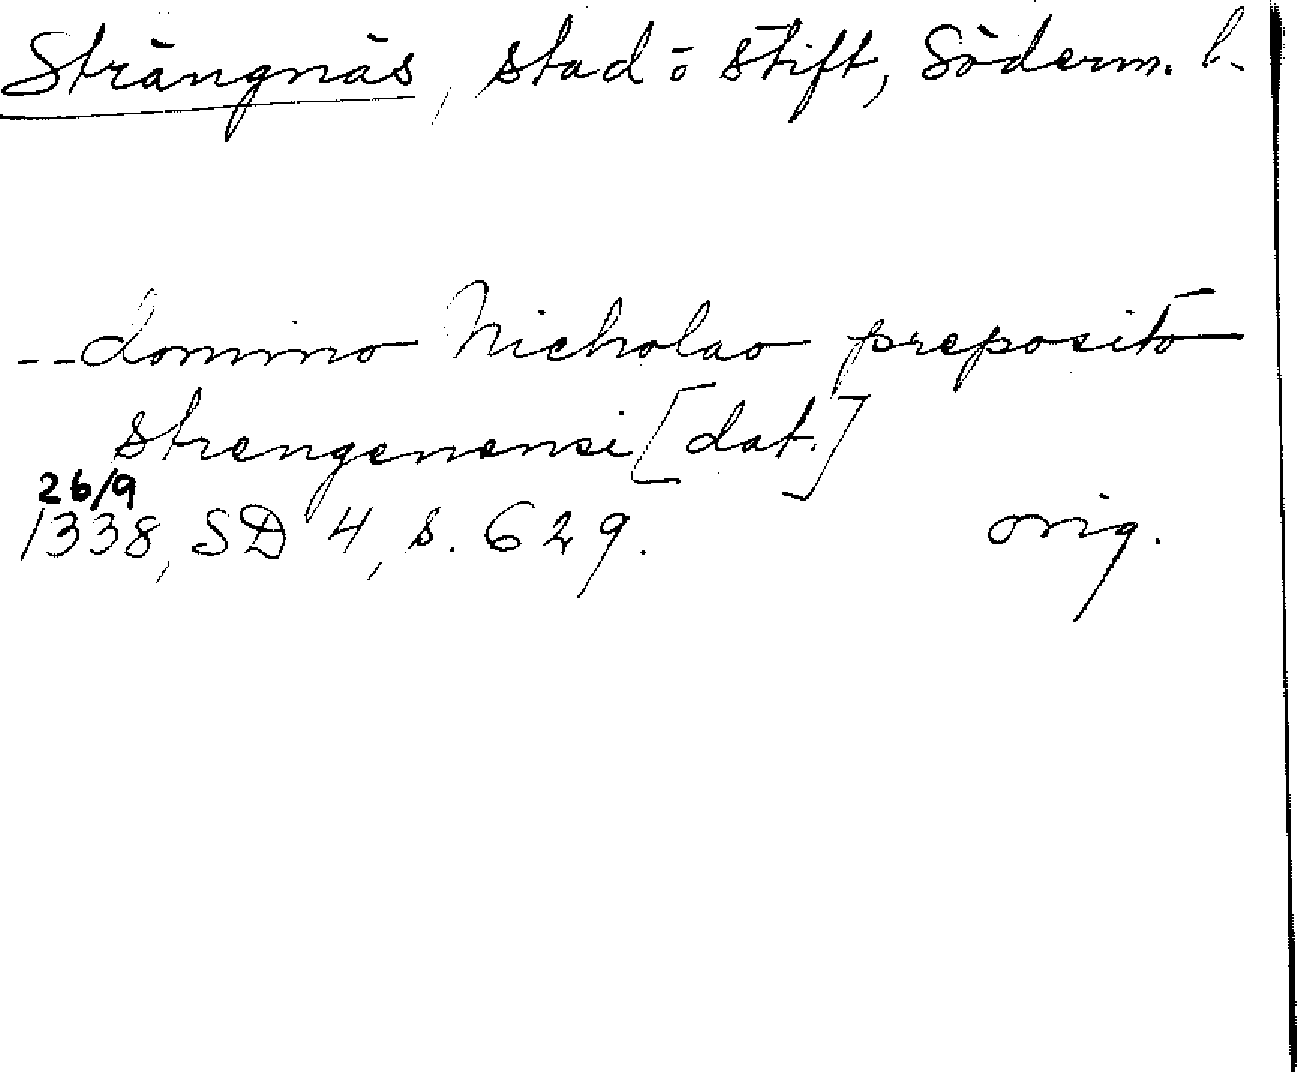 Strängnäs, stad o stift, Söderm. l.
-- domino Nicholao preposito
strengenensi [dat.]
26/9
1338, SD 4, s. 629. orig.